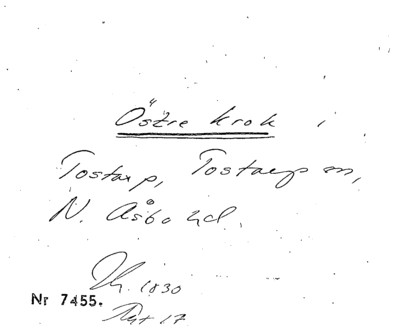 Östre krok i
Tostarp, Tostarp sn,
N. Åsbo hd.
1830
Nr 7455.
17